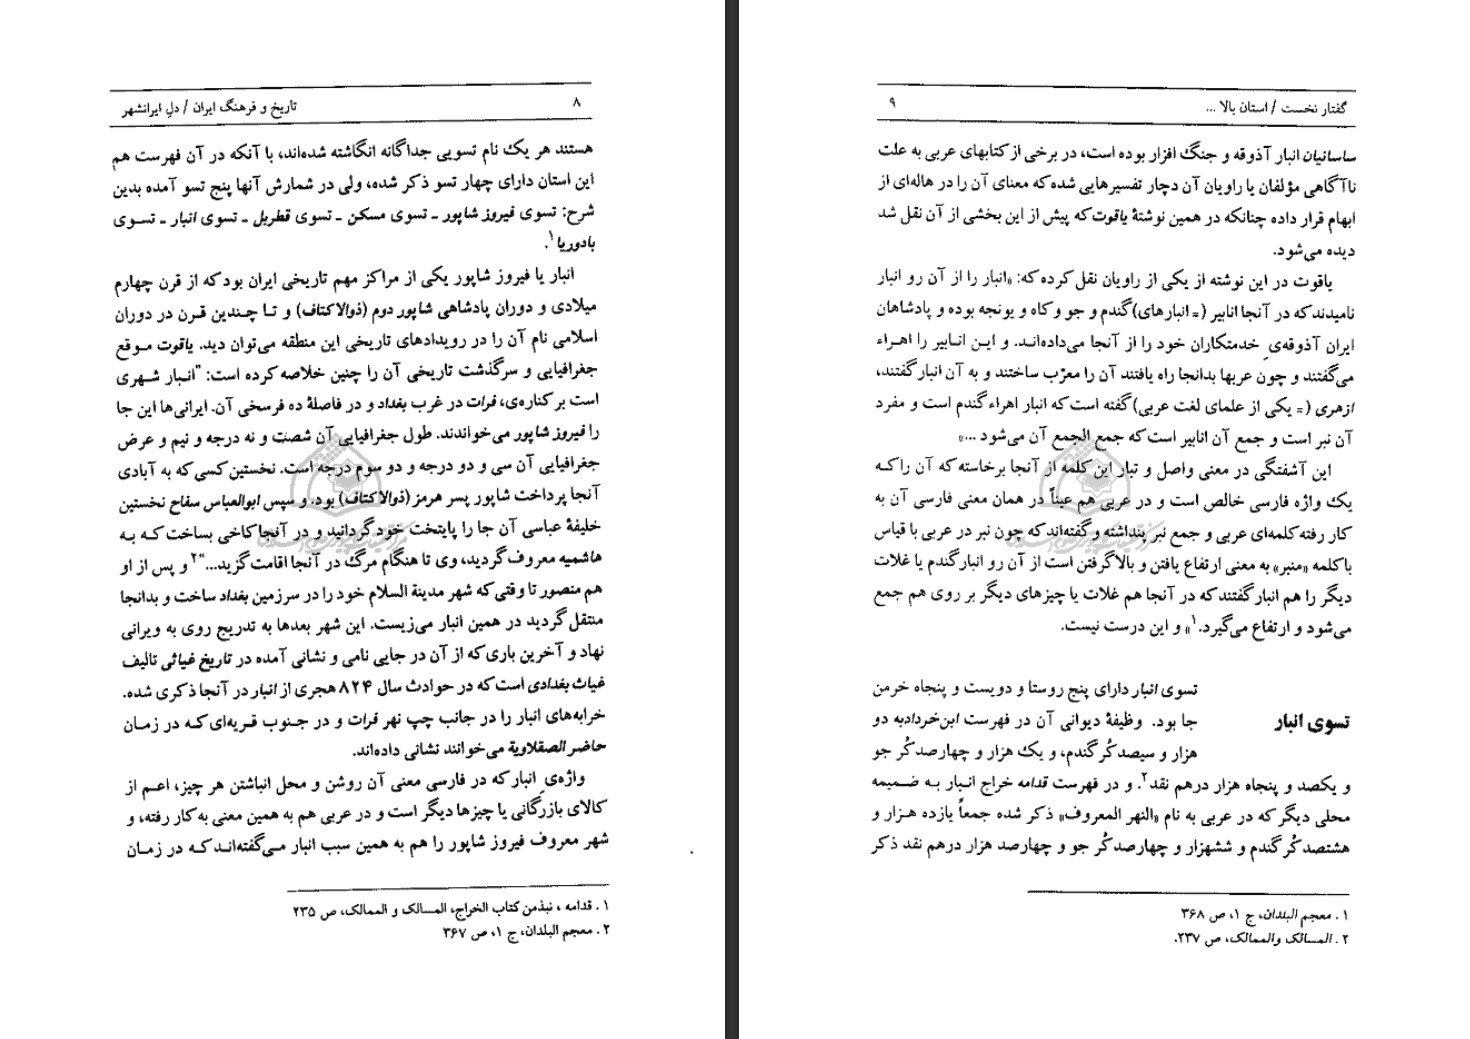 ۸
تاریخ و فرهنگ ایران / دلِ ایرانشهر
هستند هر یک نام تسویی جداگانه انگاشته شده‌اند، با آنکه در آن فهرست هم
این استان دارای چهار تسو ذکر شده، ولی در شمارش آنها پنج تسو آمده بدین
شرح: تسوی فیروز شاپور ـ تسوی مسکن ـ تسوی قطربل ـ تسوی انبار ـ تسوی
بادوریا۱.
انبار یا فیروز شاپور یکی از مراکز مهم تاریخی ایران بود که از قرن چهارم
میلادی و دوران پادشاهی شاپور دوم (ذوالاکتاف) و تـا چـندین قـرن در دوران
اسلامی نام آن را در رویدادهای تاریخی این منطقه می‌توان دید. یاقوت مـوقع
جغرافیایی و سرگذشت تاریخی آن را چنین خلاصه کرده است: "انـبار شـهری
است بر کناره‌ی، فرات در غرب بغداد و در فاصلهٔ ده فرسخی آن. ایرانی‌ها این جا
را فیروز شاپور می‌خواندند. طول جغرافیایی آن شصت و نه درجه و نیم و عرض
جغرافیایی آن سی و دو درجه و دو سوم درجه است. نخستین کسی که به آبادی
آنجا پرداخت شاپور پسر هرمز (ذوالاکتاف) بود. و سپس ابوالعباس سفاح نخستین
خلیفهٔ عباسی آن جا را پایتخت خود گردانید و در آنجا کاخی بساخت کـه بـه
هاشمیه معروف گردید، وی تا هنگام مرگ در آنجا اقامت گزید..."۲ و پس از او
هم منصور تا وقتی که شهر مدینة السلام خود را در سرزمین بغداد ساخت و بدانجا
منتقل گردید در همین انبار می‌زیست. این شهر بعدها به تدریج روی به ویرانی
نهاد و آخرین باری که از آن در جایی نامی و نشانی آمده در تاریخ غیاثی تالیف
غیاث بغدادی است که در حوادث سال ۸۲۴ هجری از انبار در آنجا ذکری شده.
خرابه‌های انبار را در جانب چپ نهر فرات و در جـنوب قـریه‌ای کـه در زمـان
حاضر الصقلاویة می‌خوانند نشانی داده‌اند.
واژه‌ی انبار که در فارسی معنی آن روشن و محل انباشتن هر چیز، اعـم از
کالای بازرگانی یا چیزها دیگر است و در عربی هم به همین معنی به کار رفته، و
شهر معروف فیروز شاپور را هم به همین سبب انبار مـی‌گفته‌انـد کـه در زمـان
۱. قدامه ، نبذمن کتاب الخراج، المسالک و الممالک، ص ۲۳۵
۲. معجم البلدان، ج ۱، ص ۳۶۷
گفتار نخست / استان بالا ...
۹
ساسانیان انبار آذوقه و جنگ افزار بوده است، در برخی از کتابهای عربی به علت
ناآگاهی مؤلفان یا راویان آن دچار تفسیرهایی شده که معنای آن را در هاله‌ای از
ابهام قرار داده چنانکه در همین نوشتهٔ یاقوت که پیش از این بخشی از آن نقل شد
دیده می‌شود.
یاقوت در این نوشته از یکی از راویان نقل کرده که: «انبار را از آن رو انبار
نامیدند که در آنجا انابیر (= انبارهای) گندم و جو و کاه و یونجه بوده و پادشاهان
ایران آذوقه‌یِ خدمتکاران خود را از آنجا می‌داده‌انـد. و ایـن انـابیر را اهـراء
می‌گفتند و چون عربها بدانجا راه یافتند آن را معرّب ساختند و به آن انبار گفتند،
ازهری (= یکی از علمای لغت عربی) گفته است که انبار اهراء گندم است و مفرد
آن نبر است و جمع آن انابیر است که جمع الجمع آن می‌شود ...»
این آشفتگی در معنی واصل و تبار این کلمه از آنجا برخاسته که آن را کـه
یک واژه فارسی خالص است و در عربی هم عیناً در همان معنی فارسی آن به
کار رفته کلمه‌ای عربی و جمع نبر پنداشته و گفته‌اند که چون نبر در عربی با قیاس
با کلمه «منبر» به معنی ارتفاع یافتن و بالا گرفتن است از آن رو انبار گندم یا غلات
دیگر را هم انبار گفتند که در آنجا هم غلات یا چیزهای دیگر بر روی هم جمع
می‌شود و ارتفاع می‌گیرد.۱» و این درست نیست.
تسوی انبار
تسوی انبار دارای پنج روستا و دویست و پنجاه خرمن
جا بود. وظیفهٔ دیوانی آن در فهرست ابن‌خردادبه دو
هزار و سیصد کُر گندم، و یک هزار و چهارصد کُر جو
و یکصد و پنجاه هزار درهم نقد۲. و در فهرست قدامه خراج انـبار بـه ضـمیمه
محلی دیگر که در عربی به نام «النهر المعروف» ذکر شده جمعاً یازده هـزار و
هشتصد کُر گندم و ششهزار و چهارصد کُر جو و چهارصد هزار درهم نقد ذکر
۱. معجم البلدان، ج ۱، ص ۳۶۸
۲. المسالک والممالک، ص ۲۳۷.